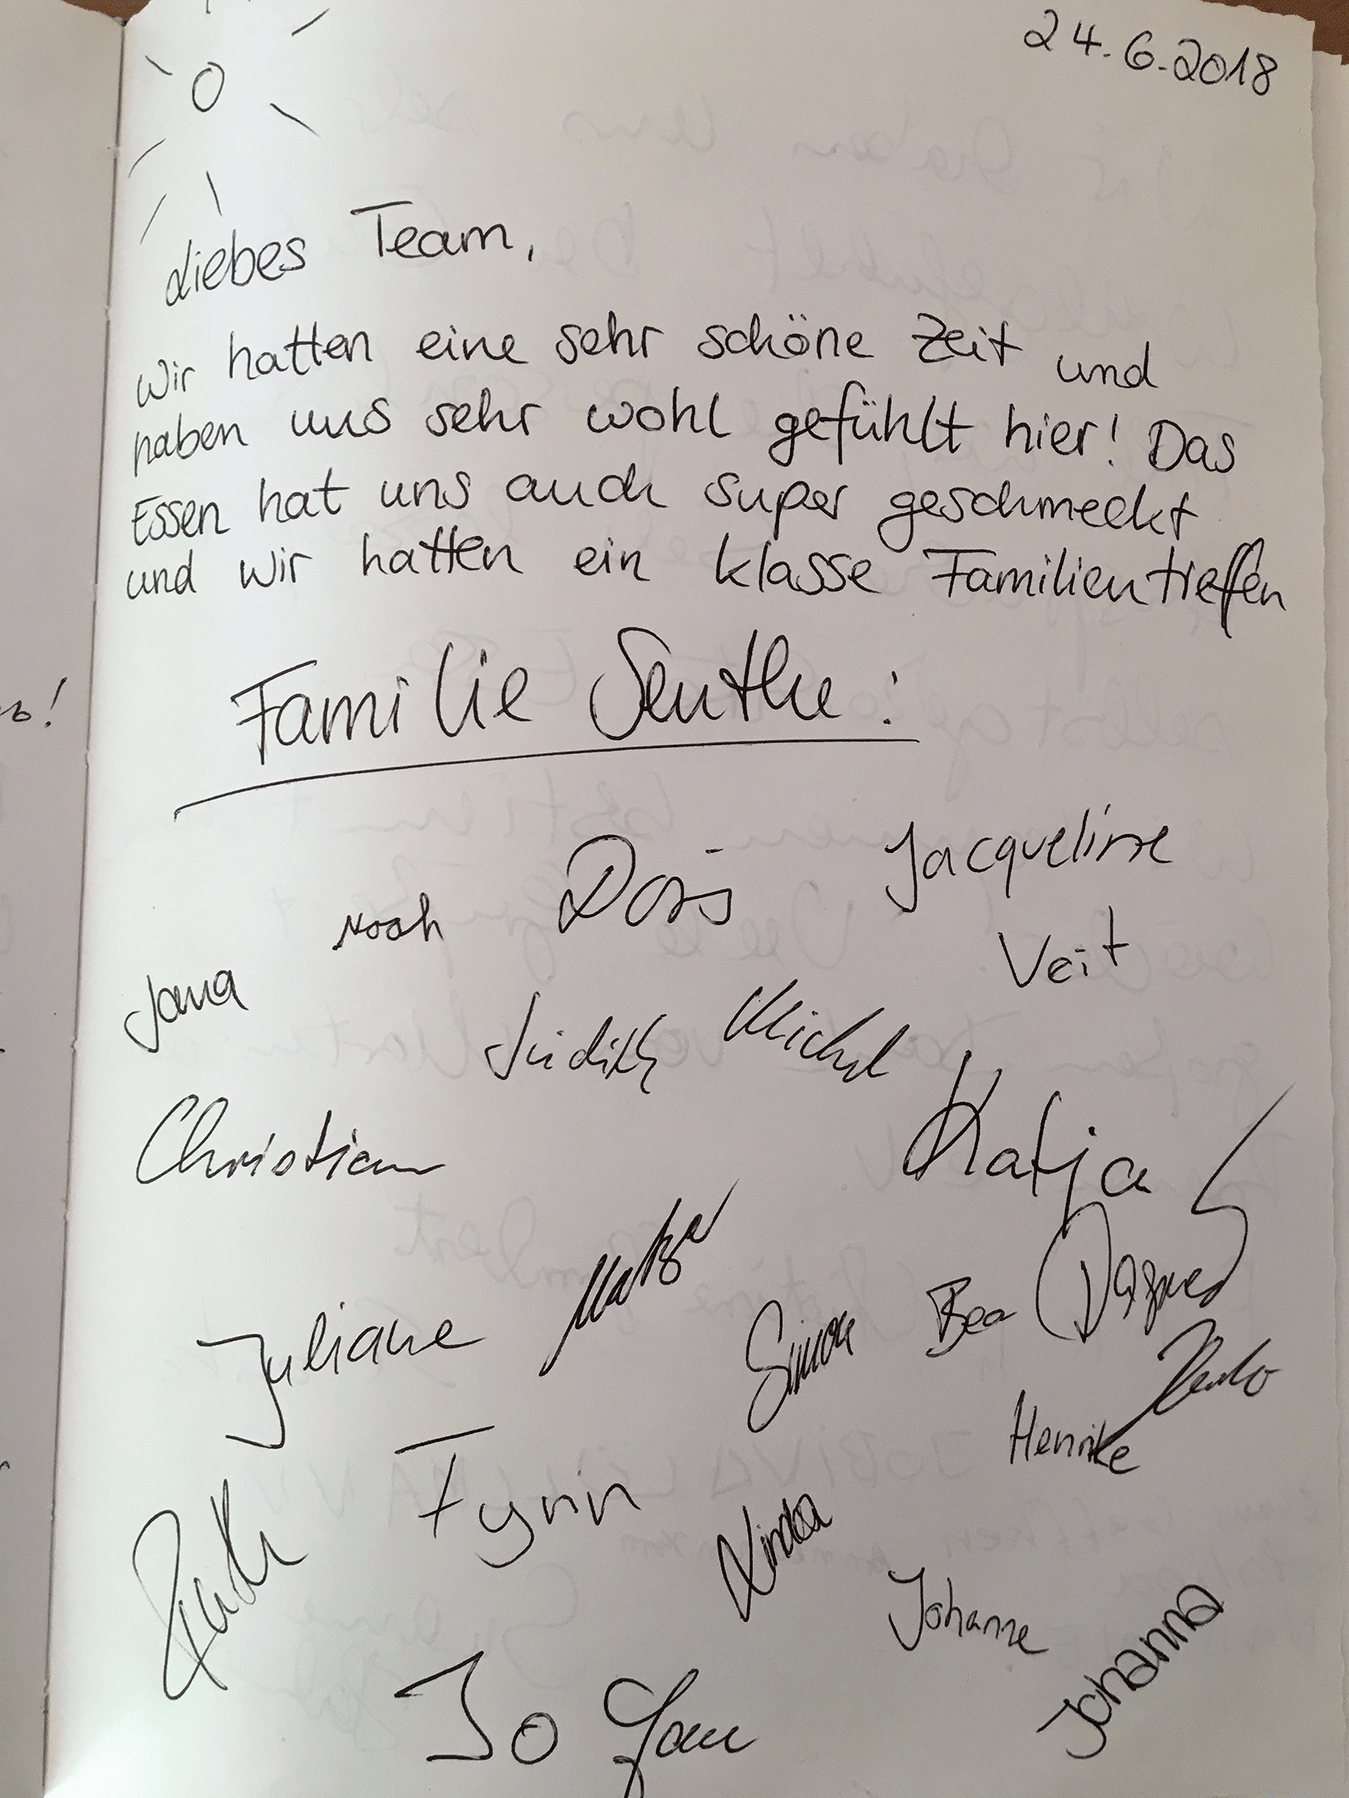 24.6.2018
Liebes Team,
wir hatten eine sehr schöne Zeit und
haben uns sehr wohl gefühlt hier! Das
Essen hat uns auch super geschmeckt
und wir hatten ein klasse Familientreffen
Familie Senthe:
Noah Doris Jacqueline
Jana Veit
Judith Michel
Christian Katja
Juliane Simon Bea
Henrike
Ruth Fynn Linda
Johanne
Johanna
Jo Jan